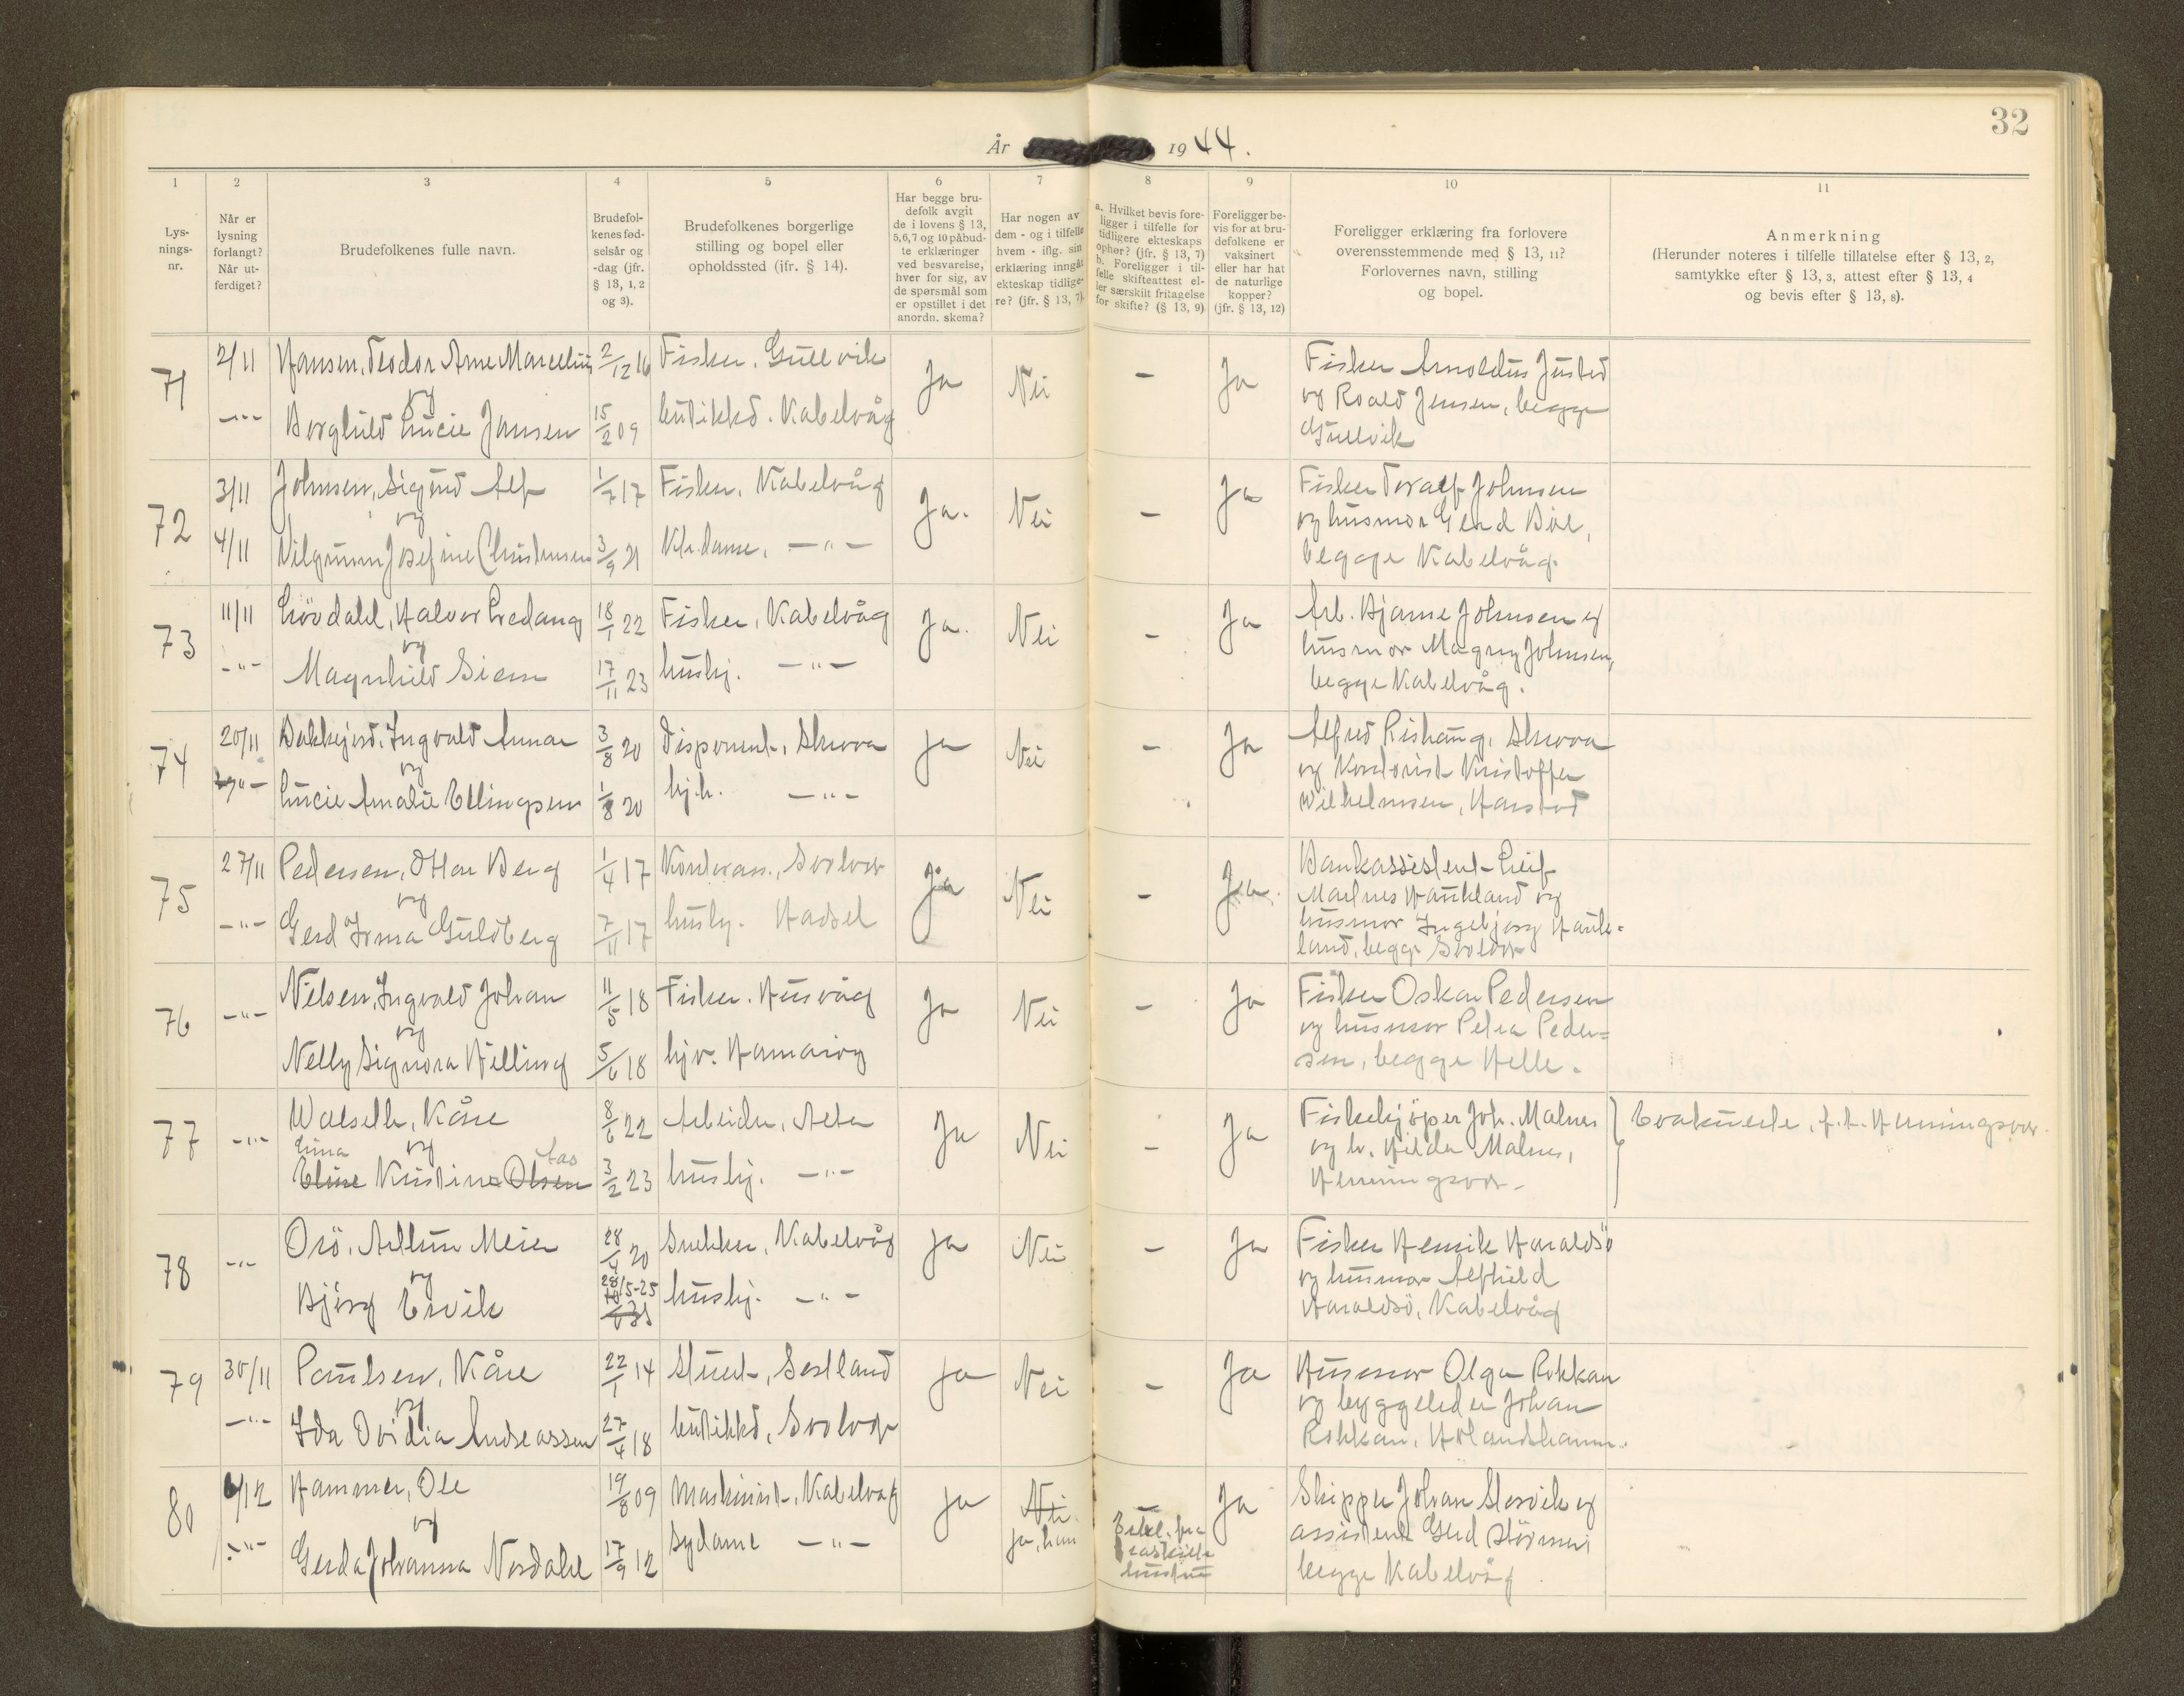 32
År 1944.
1 2 3 4 5 6 7 8 9 10 11
Lys-
nings-
nr.
Når er
lysning
forlangt?
Når ut-
ferdiget?
Brudefolkenes fulle navn.
Brudefol-
kenes fød-
selsår og
-dag (jfr.
§ 13, 1, 2
og 3).
Brudefolkenes borgerlige
stilling og bopel eller
opholdssted (jfr. § 14).
Har begge bru-
defolk avgit
de i lovens § 13,
5,6,7 og 10 påbud-
te erklæringer
ved besvarelse,
hver for sig, av
de spørsmål som
er opstillet i det
anordn. skema?
Har nogen av
dem - og i tilfelle
hvem - iflg. sin
erklæring inngåt
ekteskap tidlige-
re? (jfr. § 13, 7).
a. Hvilket bevis fore-
ligger i tilfelle for
tidligere ekteskaps
ophør? (jfr. § 13, 7)
b. Foreligger i til-
felle skifteattest el-
ler særskilt fritagelse
for skifte? (§ 13, 9)
Foreligger be-
vis for at bru-
defolkene er
vaksinert
eller har hat
de naturlige
kopper?
(jfr. § 13, 12)
Foreligger erklæring fra forlovere
overensstemmende med § 13, 11?
Forlovernes navn, stilling
og bopel.
Anmerkning
(Herunder noteres i tilfelle tillatelse efter § 13, 2,
samtykke efter § 13, 3, attest efter § 13, 4
og bevis efter § 13, 8).
71 2/11 Hansen, Teodor Arne Marcelius 2/12 16 Fisker, Gullvik Ja Nei - Ja Fisker Arnoldus Justad
og og Roald Jensen, begge
-"- Borghild Lucie Jansen 15/2 09 butikkd. Kabelvåg Gullvik
72 3/11 Johnsen, Sigurd Alf 1/7 17 Fisker, Kabelvåg Ja. Nei - Ja Fisker Toralf Johnsen
og og husmor Gerd
4/11 Josefine Christensen 3/9 21 -"- begge Kabelvåg.
73 11/11 Lövdahl, Halvor 18/1 22 Fisker, Kabelvåg Ja. Nei - Ja Arb. Bjarne Johnsen og
og husmor Magny Johnsen,
-"- Magnhild Siem 17/11 23 hushj. -"- begge Kabelvåg.
74 20/11 Bakkejord, Ingvald Annar 3/8 20 Disponent, Skrova Ja Nei - Ja Alfred Rishaug, Skrova
og og Kontorist Kristoffer
-"- Lucie Amalie Ellingsen 1/8 20 hj.h. -"- Wilhelmsen, Harstad
75 27/11 Pedersen, Ottar Berg 1/4 17 Kontorass., Svolvær Ja Nei - Ja. Bankassistent Leif
og Maelnes Haukland og
-"- Gerd Irma Guldberg 7/11 17 hushj. Hadsel husmor Ingebjörg Hauk-
land, begge Svolvær
76 -"- Nilsen, Ingvald Johan 11/5 18 Fisker. Husvåg Ja Nei - Ja Fisker Oskar Pedersen
og og husmor Petra Peder-
Nelly Signora Helling 5/6 18 hjv. Hamaröy sen, begge Helle.
77 -"- Kåre 8/6 22 Arbeider, Alta Ja Nei - Ja Fiskekjöper Joh. Malnes } Evakuerte, f.t. Henningsvær.
og og h. Hilda Malnes,
Elise Kristine Olsen 3/2 23 hushj. -"- Henningsvær
78 -"- Orö, Arthur Meier 28/4 20 Snekker, Kabelvåg Ja Nei - Ja Fisker Henrik Haraldsö
og 28/5-25 og husmor Alfhild
Björg Ervik hushj. -"- Haraldsö, Kabelvåg
79 30/11 Paulsen, Kåre 22/1 14 Stuert, Sestland Ja Nei - Ja Husmor Olga Rokkan
og og byggeleder Johan
-"- Ida Ovidia Andreassen 27/4 18 butikkd, Svolvær Rokkan, Holandshamn.
80 6/12 Hammer, Ole 19/8 09 Maskinist, Kabelvåg Ja Nei. Ja Skipper Johan Storvik og
og Ja, han assistent Gerd Störmer
-"- Gerda Johanna Nordahl 17/9 12 Sydame -"- begge Kabelvåg.